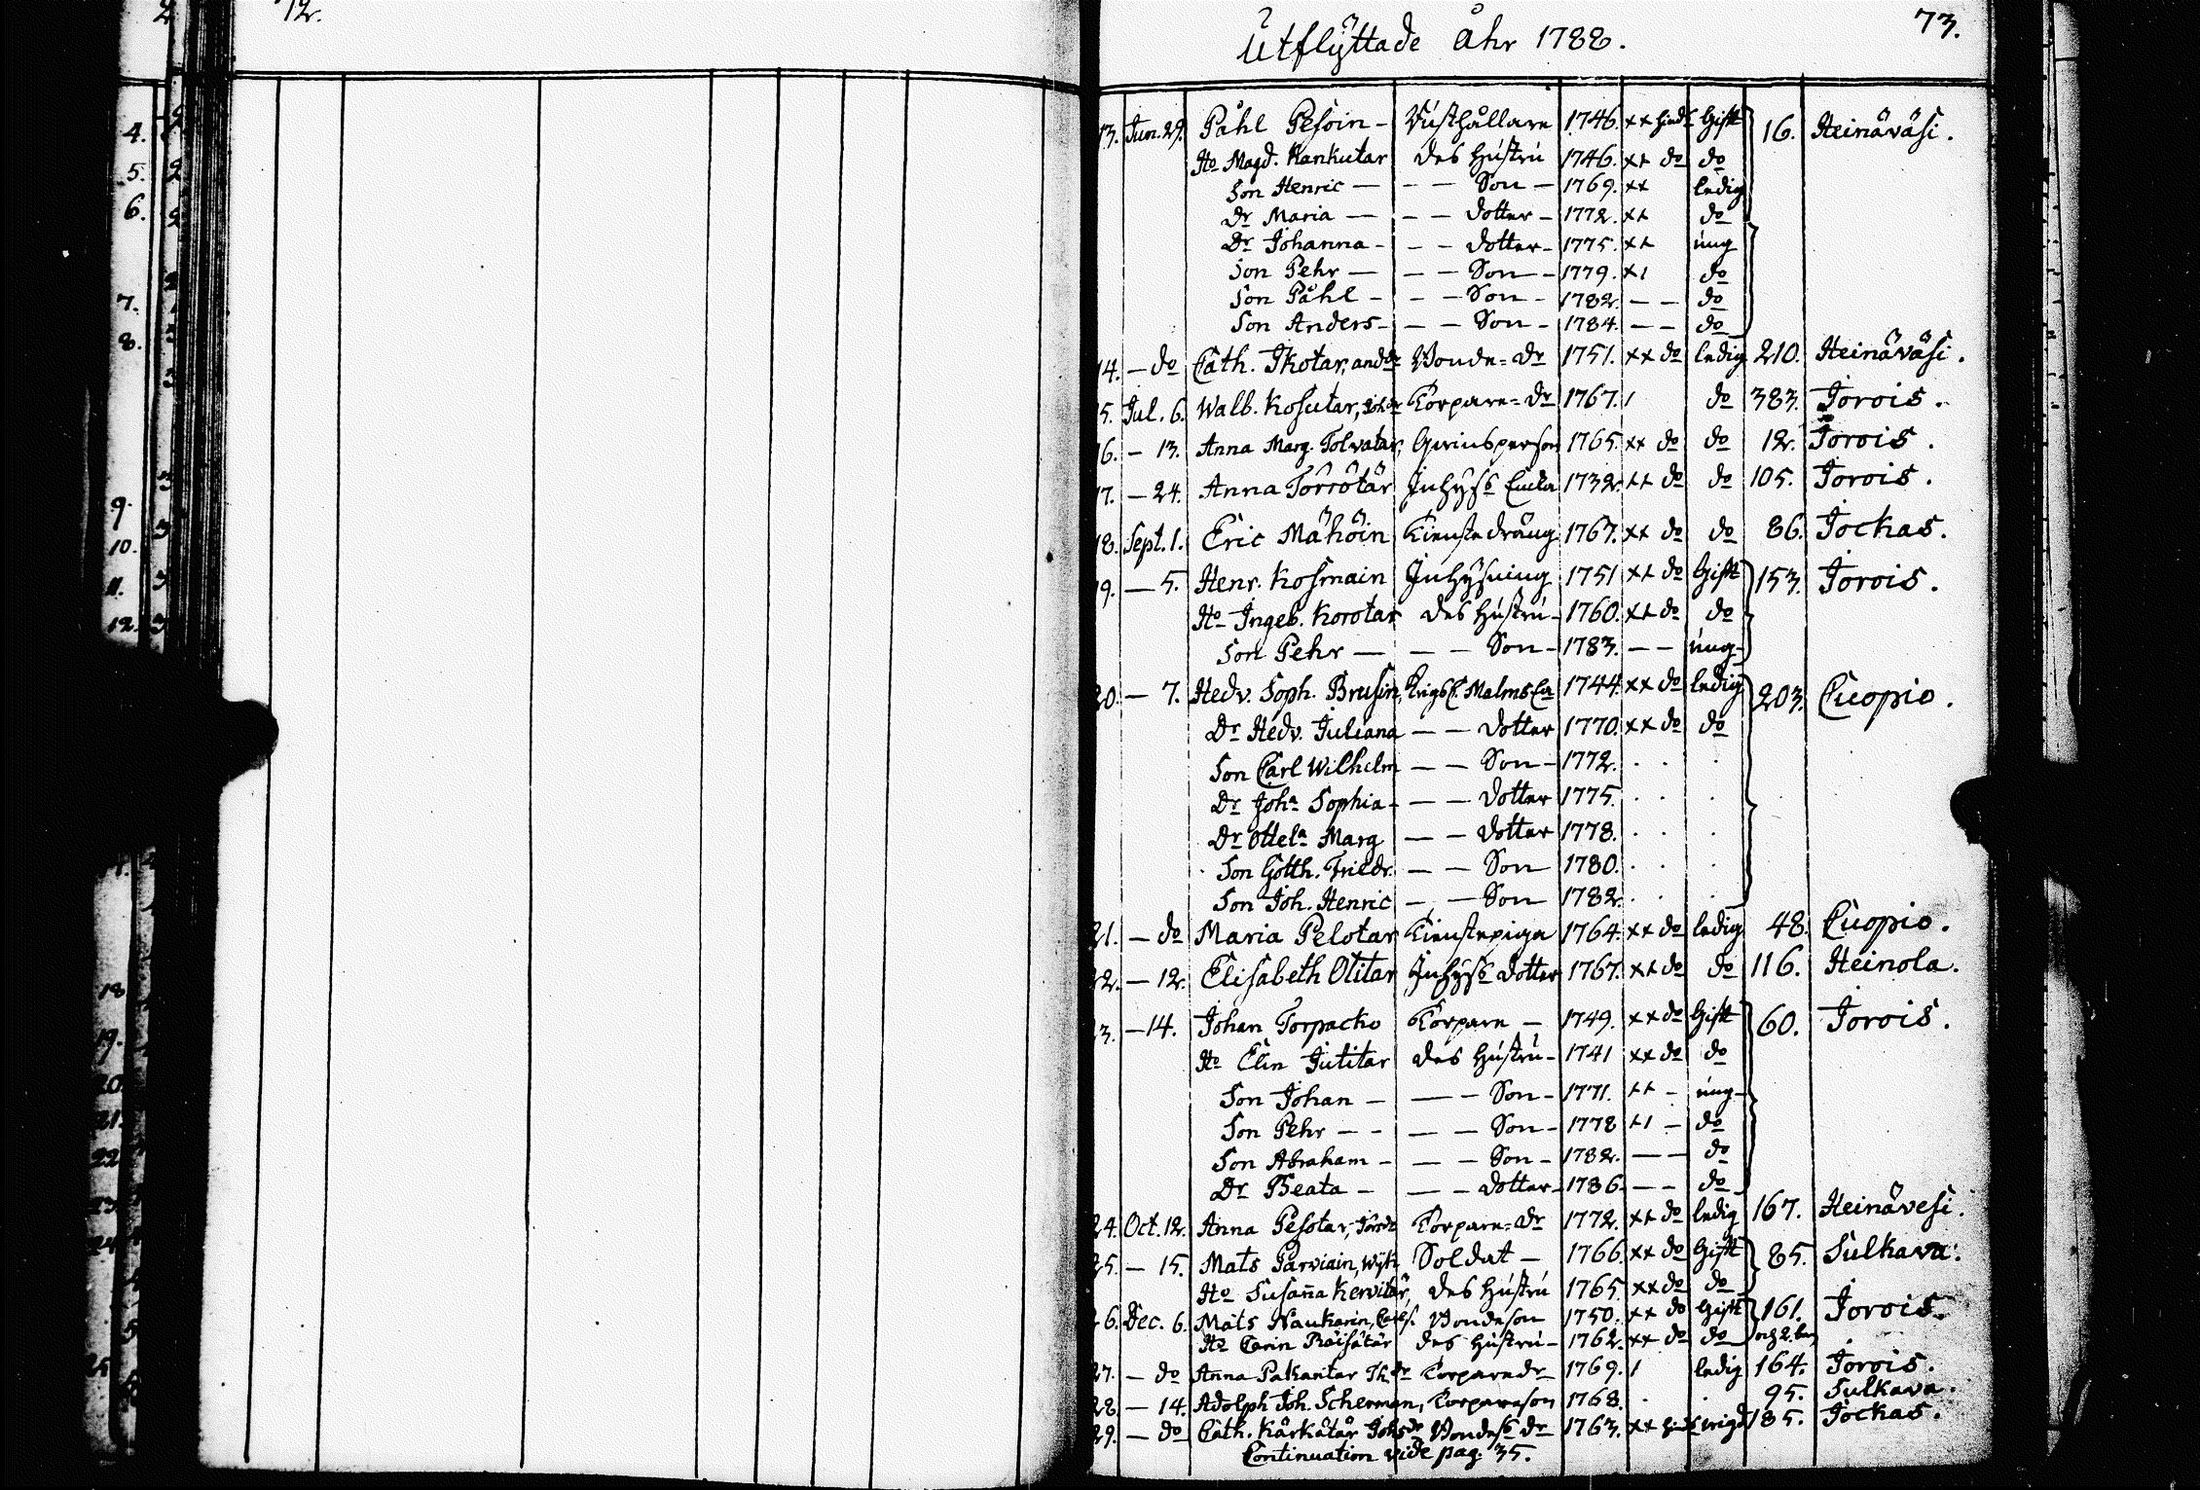 72.
73.
Utflyttade Åhr 1788.
13. Jun. 29. Påhl Pesoin - Rusthållare 1746. ×× Gift 16. Heinäväsi.
Ho Magd. Kankutar des Hustru 1746. ×+ do do
Son Henric — – — Son — 1769. ×× ledig
Dr Maria — – — dotter – 1772. ×+ do
Dr Johanna – – — dotter – 1775. ×+ ung
Son Pehr — – — Son — 1779. ×1 do
Son Påhl – – — Son – 1782. – – do
Son Anders – – — Son – 1784. – – do
14. — do Cath. Ikotar, andsdr Bonde-dr 1751. ×× do ledig 210. Heinäväsi.
15. Jul. 6. Walb. Kosutar, Torpare-dr 1767. / do 383. Jorois.
16. – 13. Anna Marg. Tolvatar, 1765. ×× do do 12. Jorois.
17. – 24. Anna Torrötär Inhyses Enka 1732. ×+ do do 105. Jorois.
18. Sept. 1. Eric Mähöin Tienstedräng 1767. ×× do do 86. Jockas.
19. — 5. Henr. Kosmain Inhysing 1751 ×+ do Gift 153. Jorois.
Ho Ingeb. Korotar des Hustru – 1760. ×+ do do
Son Pehr — – — Son – 1783. – – ung –
20. – 7. Hedv. Soph. Brusin, Malms Ea 1744. ×× do ledig 203. Cuopio.
Dr Hedv. Juliana – — dotter 1770. ×× do do
Son Carl Wilhelm – — Son – 1772. . . .
Dr Joha Sophia – – — dotter 1775. . . .
Dr Ottela Marg — – dotter 1778. . . .
Son Gotth. Friedr. – — Son 1780. . . .
Son Joh. Henric – — Son 1782. . . .
21. – do Maria Pelotar Tienstepiga 1764. ×× do ledig 48. Cuopio.
22. – 12. Elisabeth Otitar Inhyses dotter 1767. ×+ do do 116. Heinola.
23. – 14. Johan Torpacko Torpare — 1749. ×× do Gift 60. Jorois.
Ho Elin Jutitar des Hustru – 1741 ×× do do
Son Johan – — – Son – 1771. ++ – ung –
Son Pehr – – — – Son – 1778 +1 – do
Son Abraham – — – Son – 1782. – – do
Dr Beata – — – dotter – 1786. – – do
24. Oct. 12. Anna Pesotar, Torpare-dr 1772. ×+ do ledig 167. Heinävesi.
25. – 15. Mats Parviain, Soldat – 1766. ×× do Gift 85. Sulkava.
Ho Susanna Kervitär, des Hustru 1765. ×× do do
26. Dec. 6. Mats Naukarin, Bondeson 1750. ×× do Gift 161. Jorois.
Ho Carin Räisätär des Hustru – 1762. ×× do do och 2. barn
27. – do Anna Pakantar Torparedr 1769. 1 ledig 164. Jorois.
28. – 14. Adolph Joh. Scherman, Torpareson 1768. . . 95. Sulkava.
29. – do Cath. Kärkätär Johsdr Bondes dr 1763. ×× 185. Jockas.
Continuation vide pag. 35.